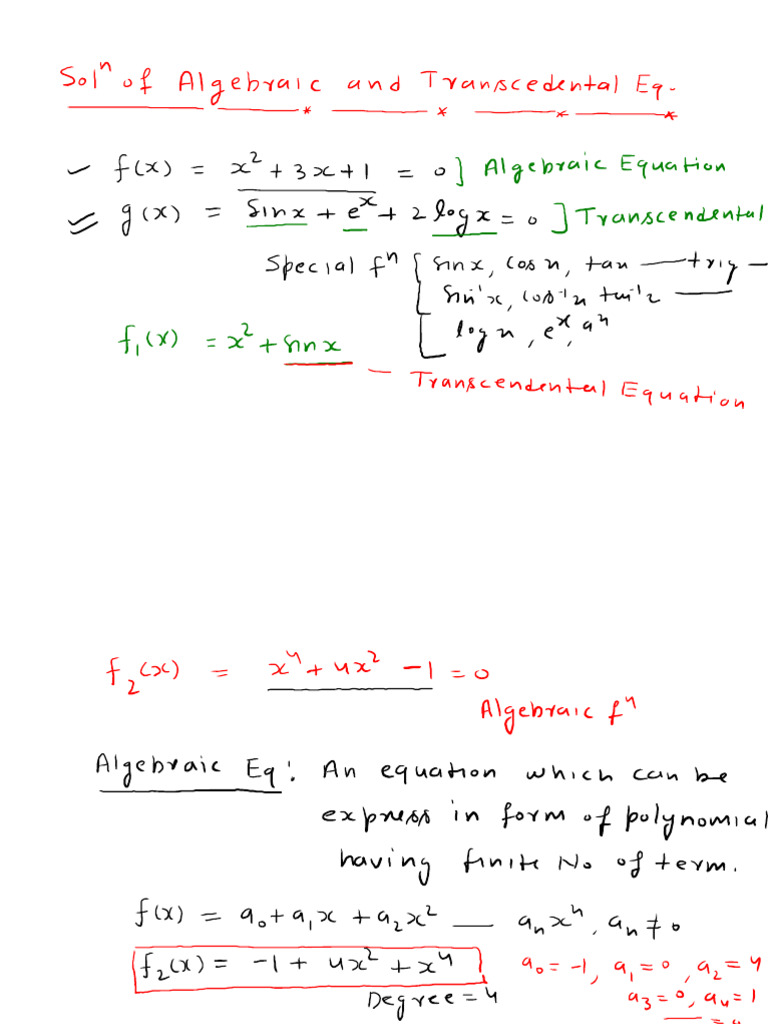 Solⁿ of Algebraic and Transcedental Eq.
f(x) = x² + 3x + 1 = 0 ] Algebraic Equation
g(x) = sinx + eˣ + 2 logx = 0 ] Transcendental
Special fⁿ [ sinx, cosx, tan — trig —
[ sin⁻¹x, cos⁻¹x tan⁻¹x —
[ logx, eˣ, aˣ
f₁(x) = x² + sinx
— Transcendental Equation
f₂(x) = x⁴ + 4x² - 1 = 0
Algebraic fⁿ
Algebraic Eq : An equation which can be
express in form of polynomial
having finite No of term.
f(x) = a₀ + a₁x + a₂x² — aₙxⁿ, aₙ ≠ 0
f₂(x) = -1 + 4x² + x⁴
a₀ = -1, a₁ = 0, a₂ = 4
Degree = 4
a₃ = 0, a₄ = 1